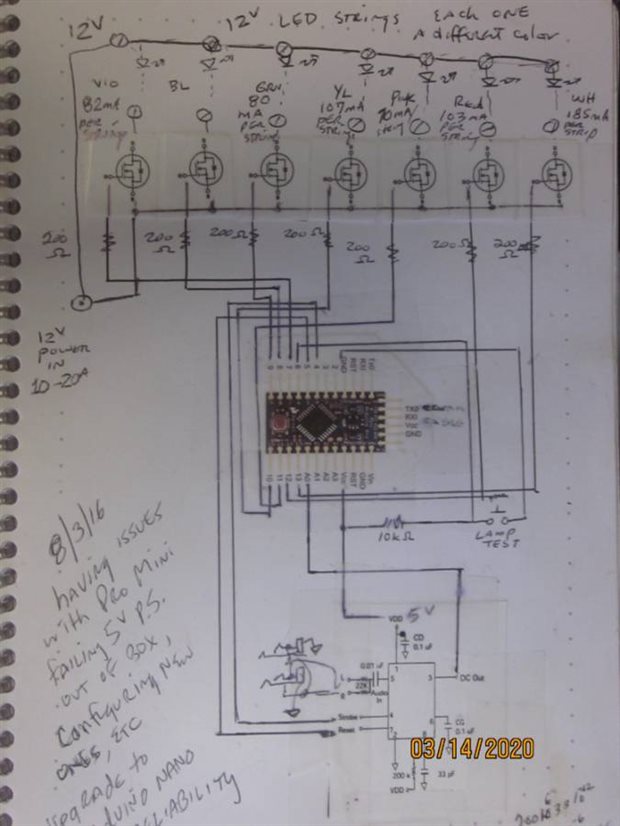 12V
12V LED STRINGS EACH ONE
A different color
VIO
82mA
PER
String
BL
GRN
80
MA
PER
STRING
YL
107mA
PER
String
Pink
70mA
Red
103mA
PER
String
WH
185mA
PER
STRIP
200
Ω
200
Ω
200Ω
200Ω
200
Ω
200
Ω
200
Ω
12V
POWER
IN
10-20A
9 8 7 6 5 4 3 2 GND RST RXI TXO
TXO
RXI
Vcc
GND
10 11 12 13 A0 A1 A2 A3 Vcc RST GND Vin
10KΩ
LAMP
TEST
8/3/16
having issues
with PRO Mini
failing 5V P.S.
out of box,
Configuring New
ones, ETC
upgrade to
NANO
RELIABILITY
VDD 5V
CD
0.1 uF
0.01 uF
22K
L
R
Audio
In
1
5
3
DC Out
Strobe
4
Reset
7
6
CG
0.1 uF
2
8
200 k
33 pF
VDD
03/14/2020